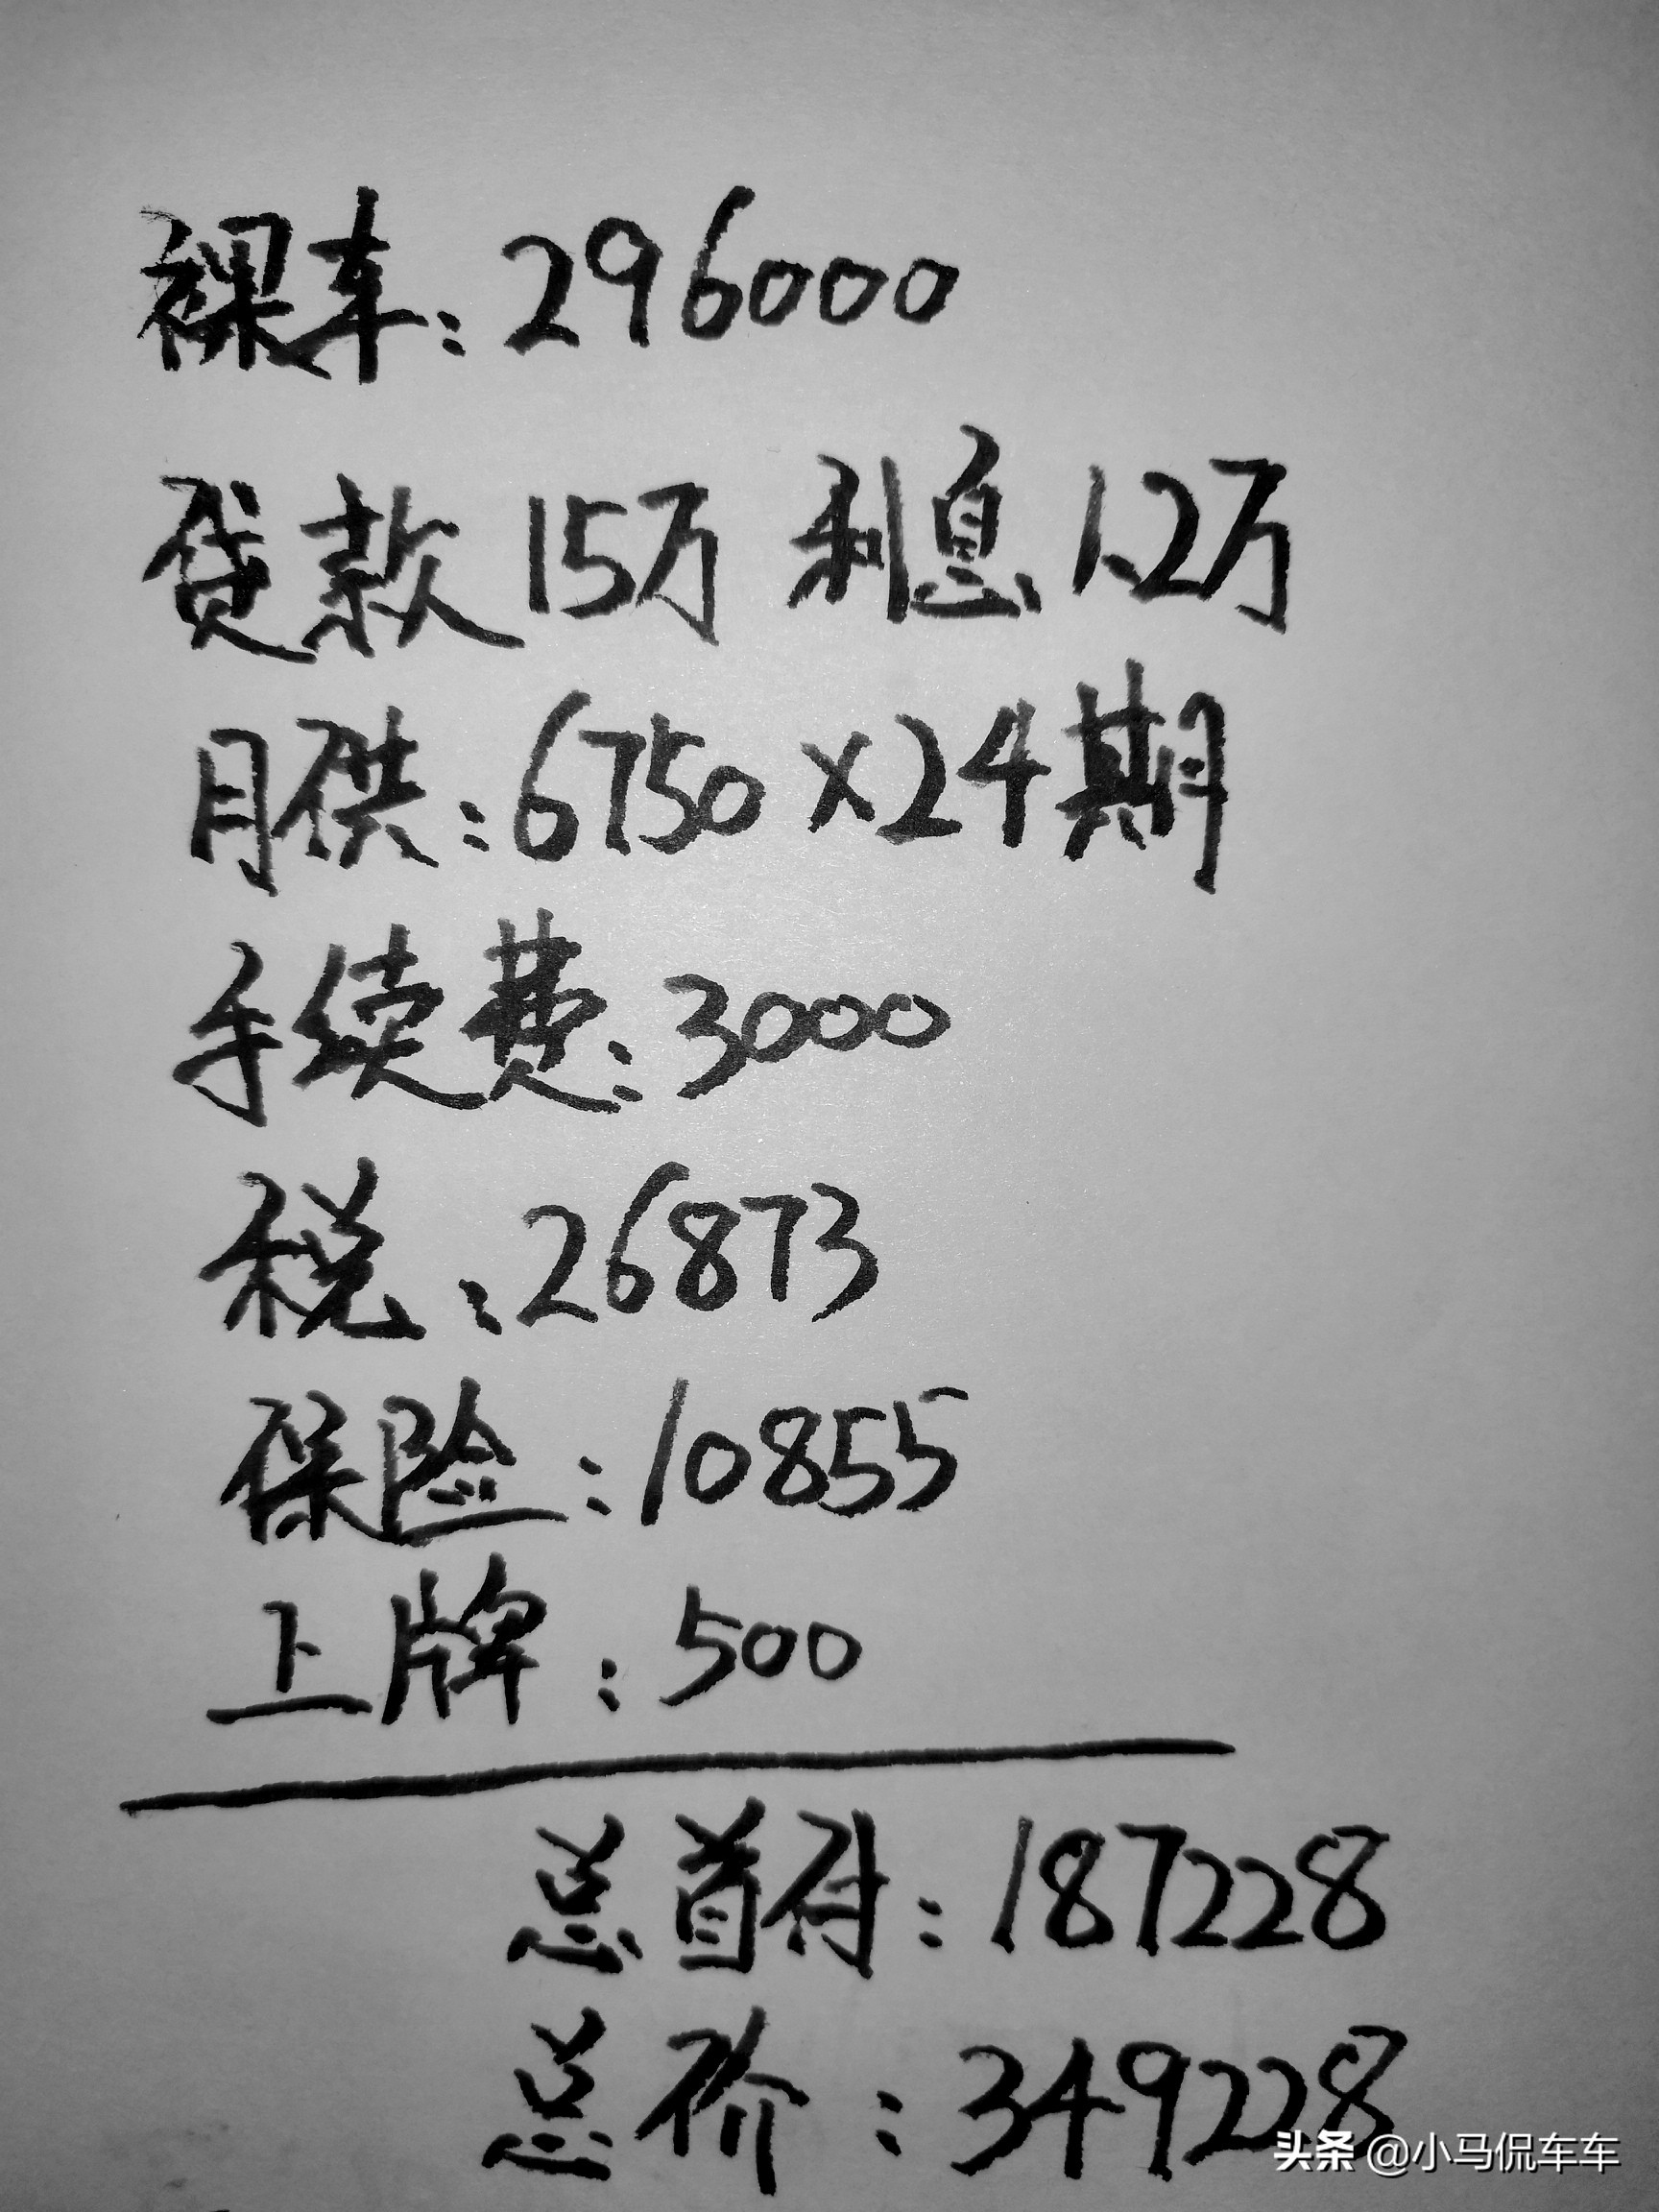 裸车：296000
贷款15万 利息1.2万
月供：6750×24期
手续费：3000
税：26873
保险：10855
上牌：500
总首付：187228
总价：349228
头条 @小马侃车车